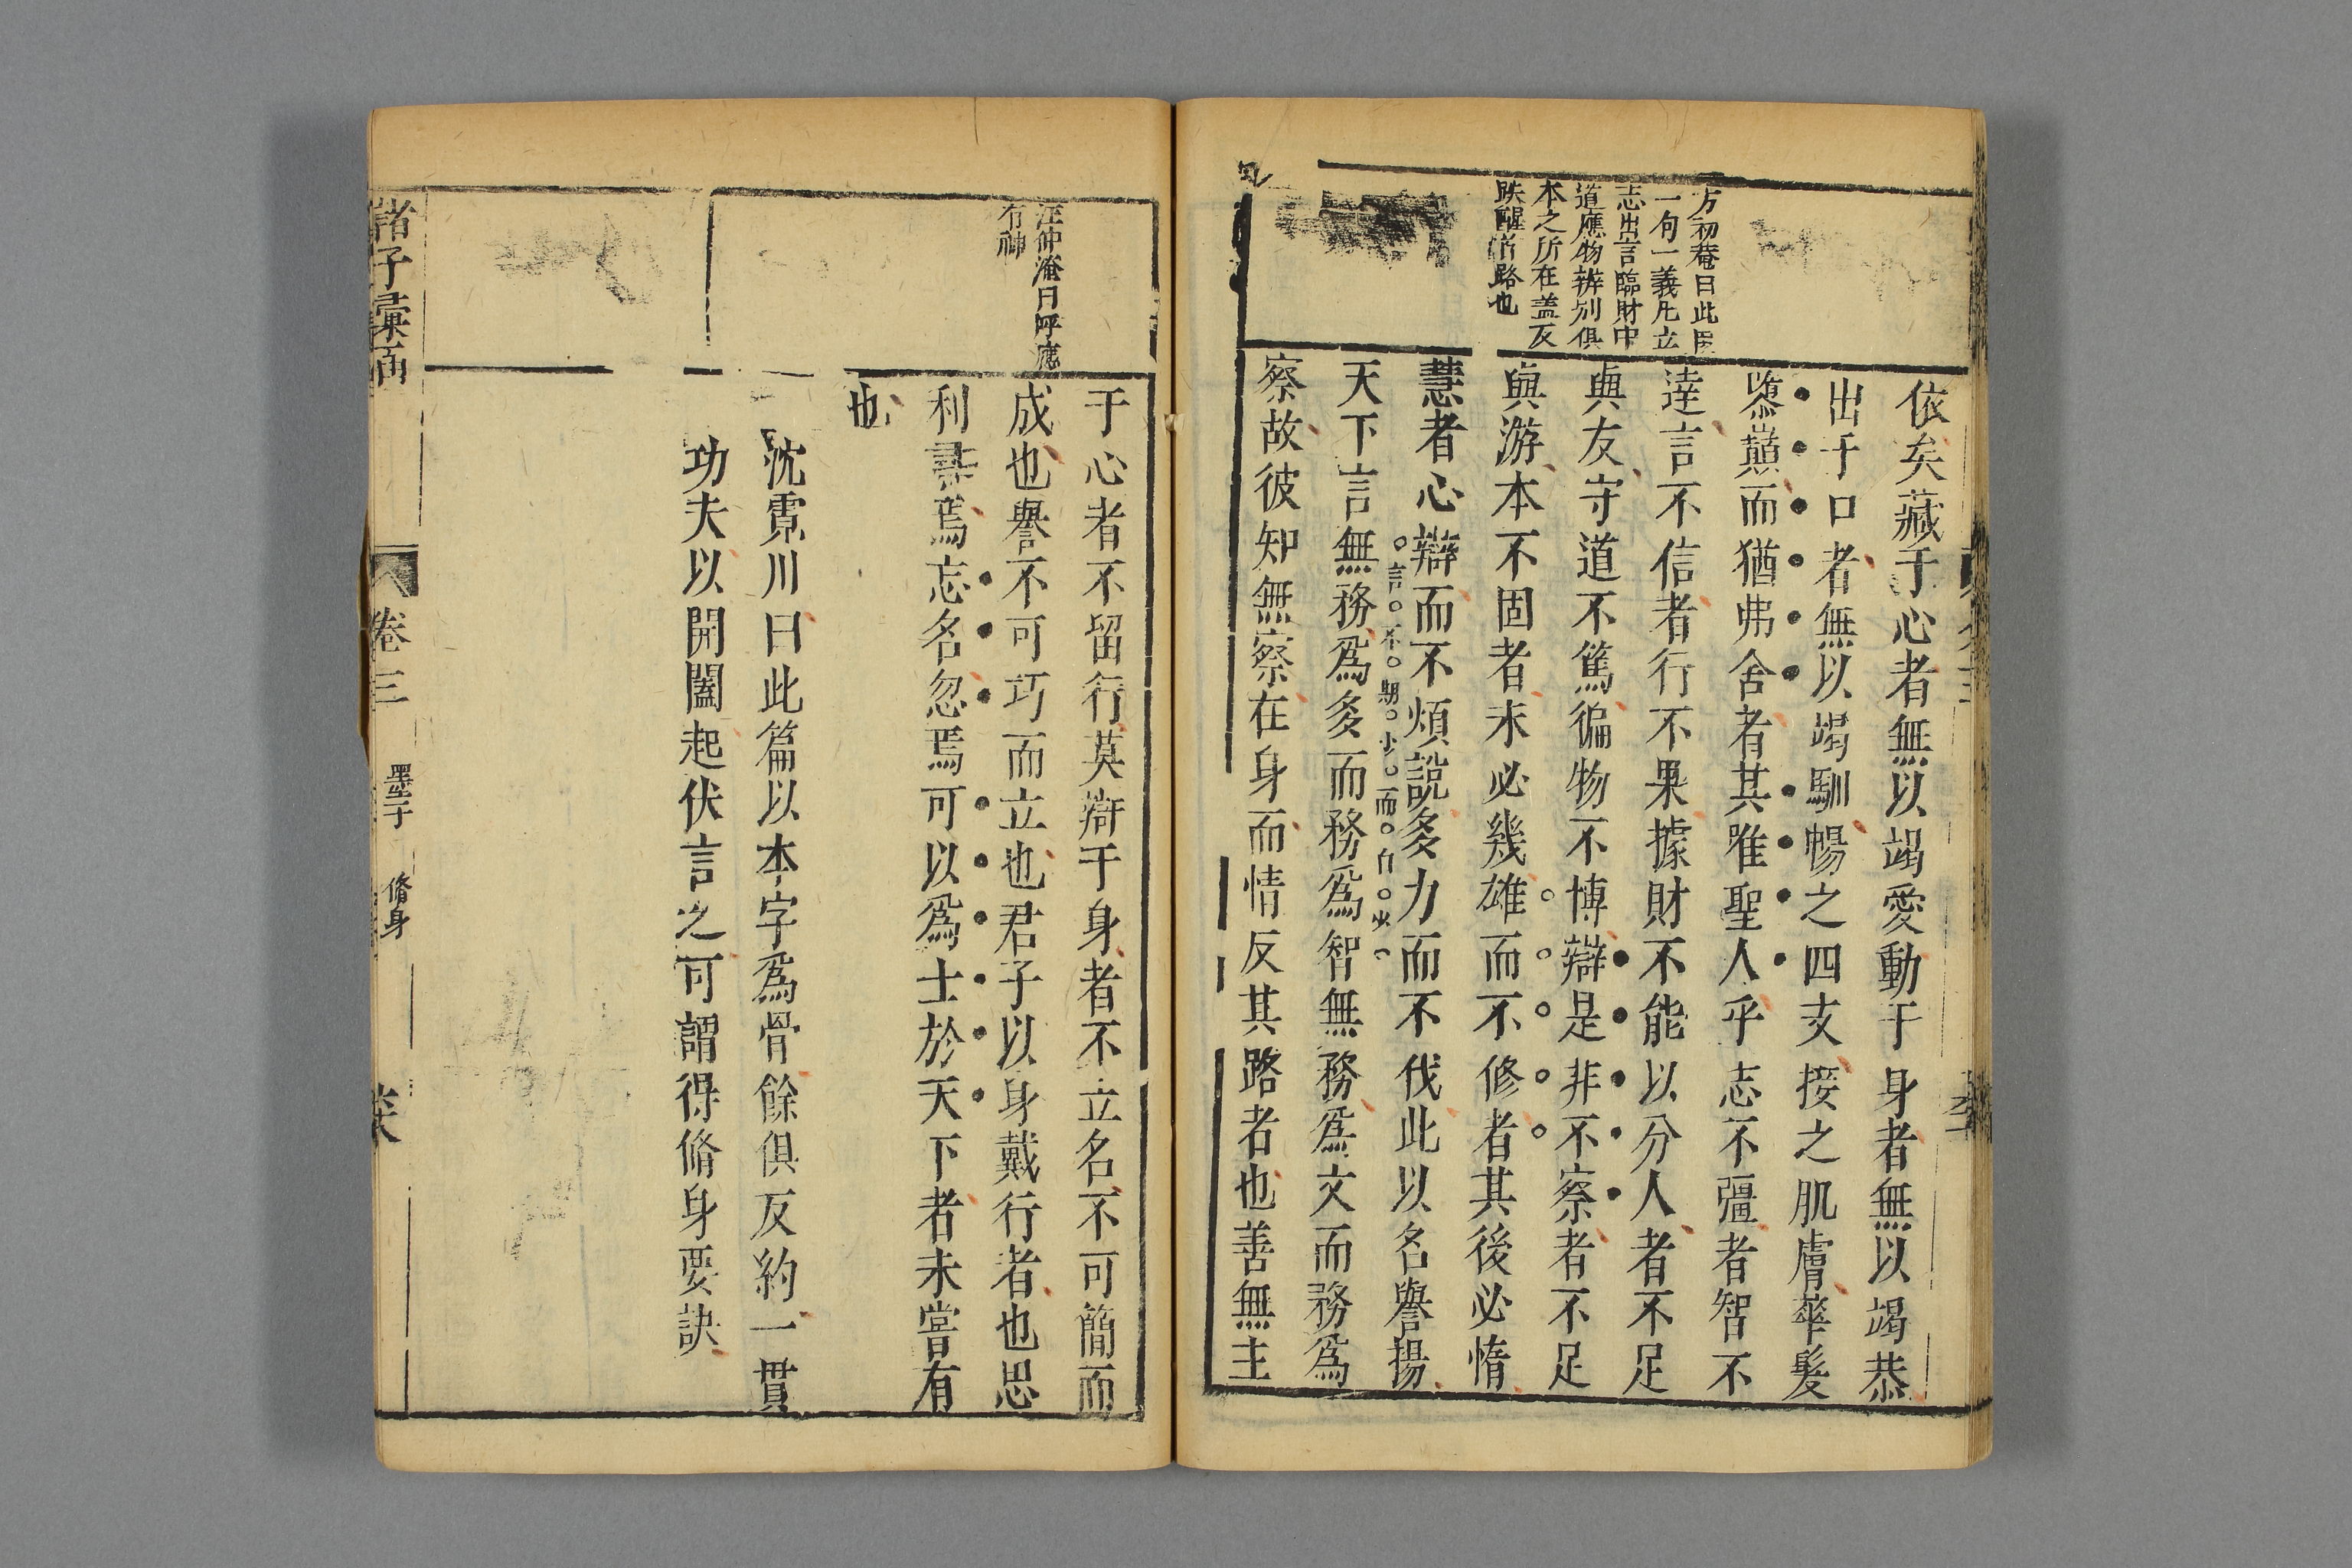 方初菴曰此固
一句一義凡立
志出言臨財中
道應物辨別俱
本之所在蓋反
跌醒俏路也
依矣藏于心者無以竭愛動于身者無以竭恭
出于口者無以竭馴暢之四支接之肌膚華髮
隳巔而猶弗舍者其唯聖人乎志不彊者智不
達言不信者行不果據財不能以分人者不足
與友守道不篤徧物不博辯是非不察者不足
與游本不固者末必幾雄而不修者其後必惰
慧者心辯而不煩說多力而不伐此以名譽揚
言不期少而自少
天下言無務爲多而務爲智無務爲文而務爲
察故彼知無察在身而情反其路者也善無主
汪仲淹曰呼應
有神
于心者不留行莫辯于身者不立名不可簡而
成也譽不可巧而立也君子以身戴行者也思
利尋焉忘名忽焉可以爲士於天下者未嘗有
也
沈霓川曰此篇以本字爲骨餘俱反約一貫
功夫以開闔起伏言之可謂得脩身要訣
諸子彙函
卷三
墨子
脩身